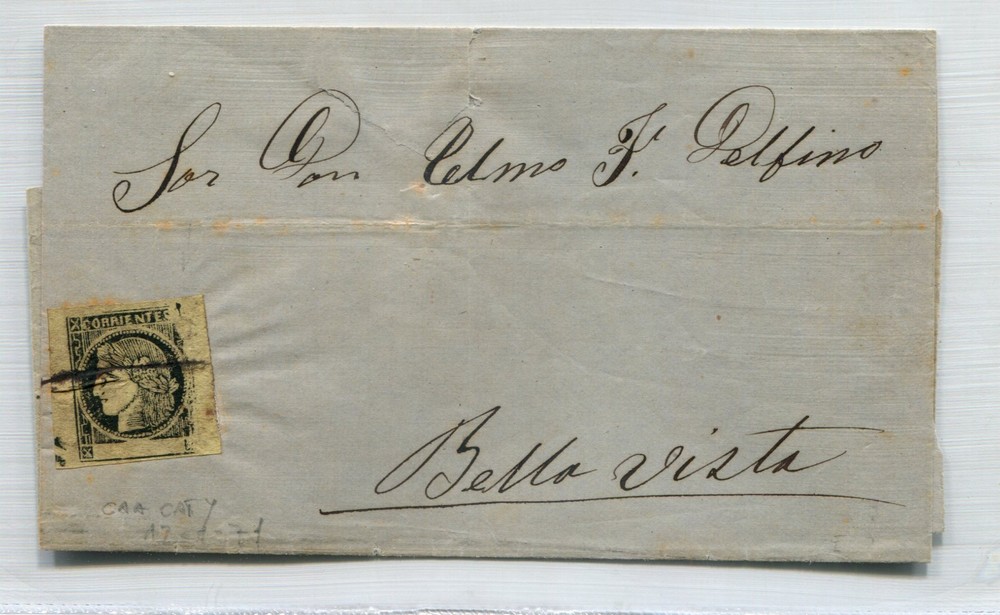 Sor Don Elmo F. Delfino
CORRIENTES
Bella vista
CAA CATY